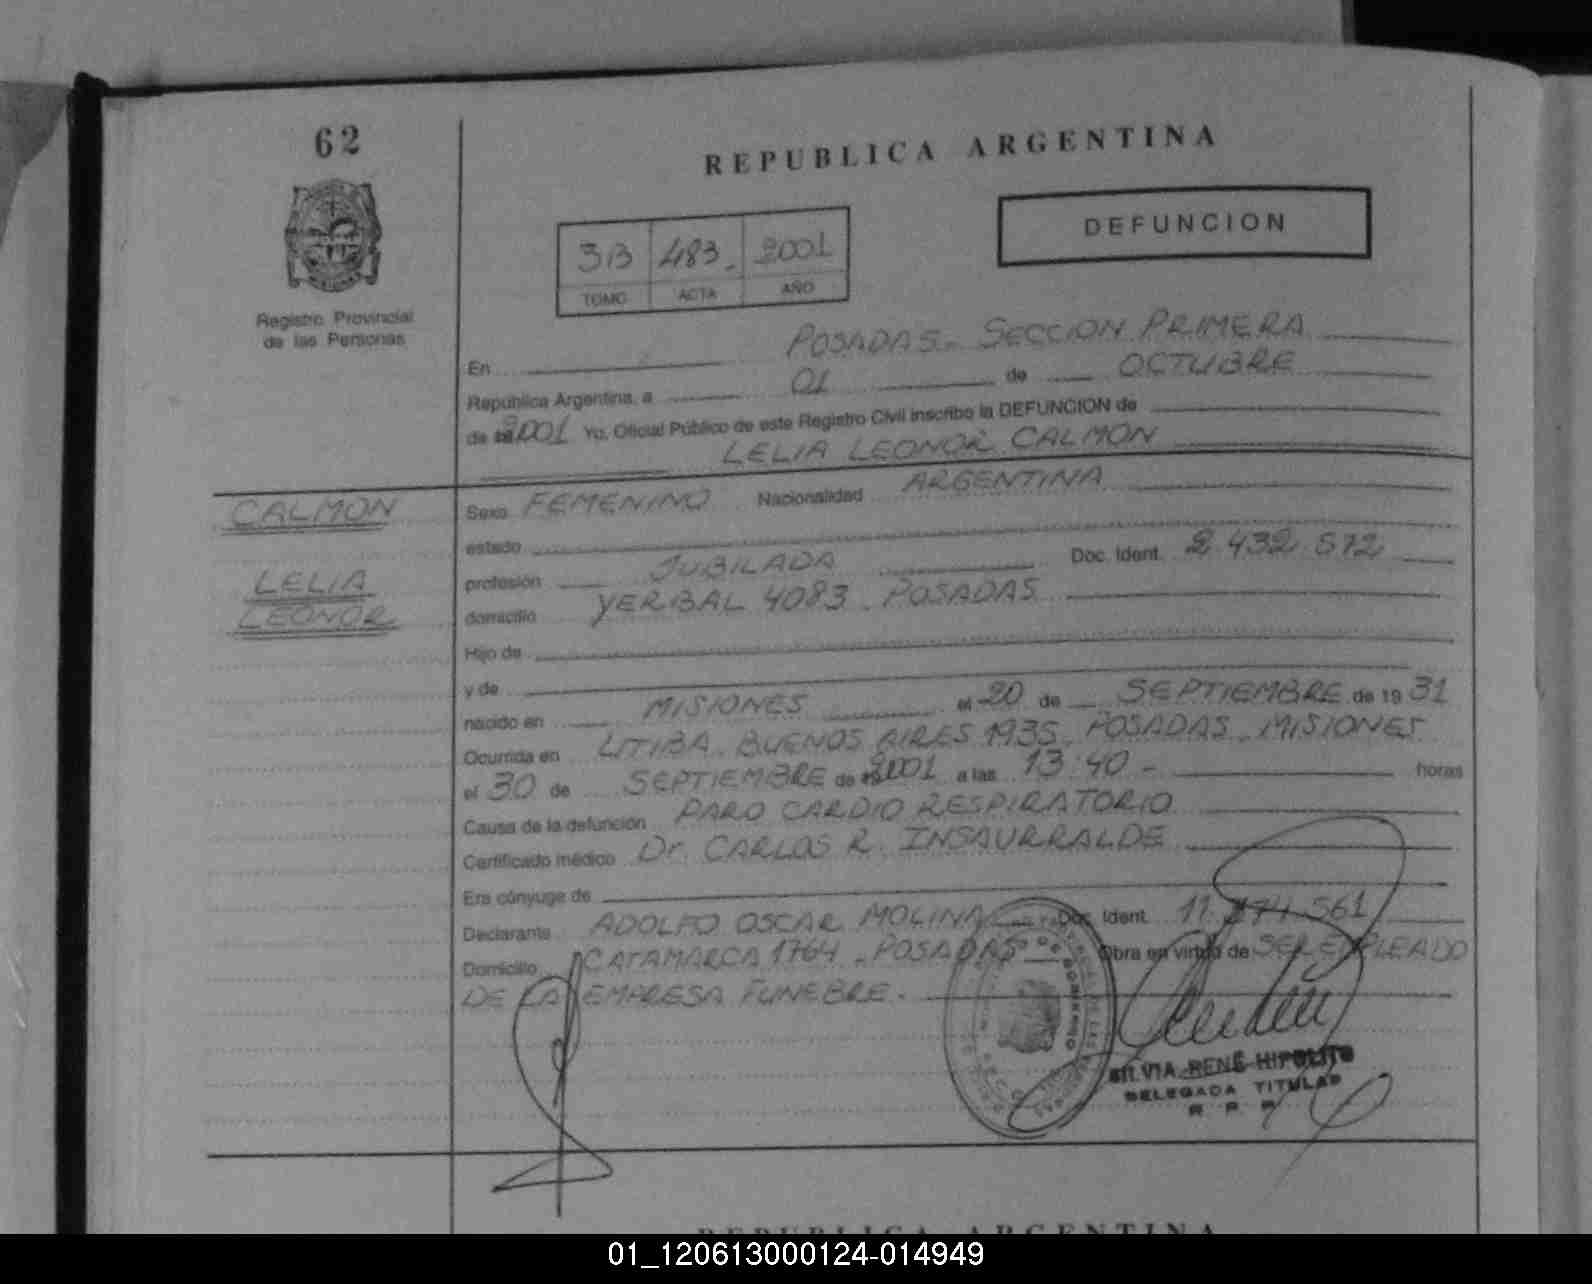 62
REPUBLICA ARGENTINA
DEFUNCION
3B 483 2001
TOMO ACTA AÑO
Registro Provincial
de las Personas
En POSADAS - SECCION PRIMERA
República Argentina, a 01 de OCTUBRE
de 2001 Yo, Oficial Público de este Registro Civil inscribo la DEFUNCION de
LELIA LEONOR CALMON
CALMON
LELIA
LEONOR
Sexo FEMENINO Nacionalidad ARGENTINA
estado
profesión JUBILADA Doc. Ident. 2.432.572
domicilio YERBAL 4083 - POSADAS
Hijo de
y de
nacido en MISIONES el 20 de SEPTIEMBRE de 1931
Ocurrida en UTIBA. BUENOS AIRES 1935 - POSADAS - MISIONES
el 30 de SEPTIEMBRE de 2001 a las 13:40 - horas
Causa de la defunción PARO CARDIO RESPIRATORIO
Certificado médico Dr. CARLOS R. INSAURRALDE
Era cónyuge de
Declarante ADOLFO OSCAR MOLINA Doc. Ident. 11.174.561
Domicilio CATAMARCA 1764 - POSADAS Obra en virtud de SER EMPLEADO
DE LA EMPRESA FUNEBRE.
SILVIA RENÉ HIPOLITO
DELEGADA TITULAR
R. P. P.
REPUBLICA ARGENTINA
01_120613000124-014949